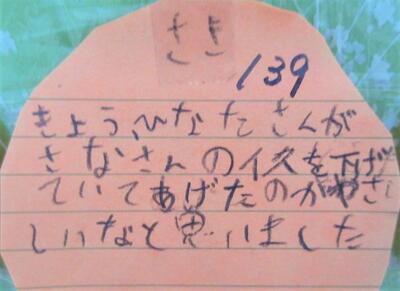 さき
139
きょう、ひなたさんが
さなさんのイスを下げ
ていてあげたのがやさ
しいなと思いました